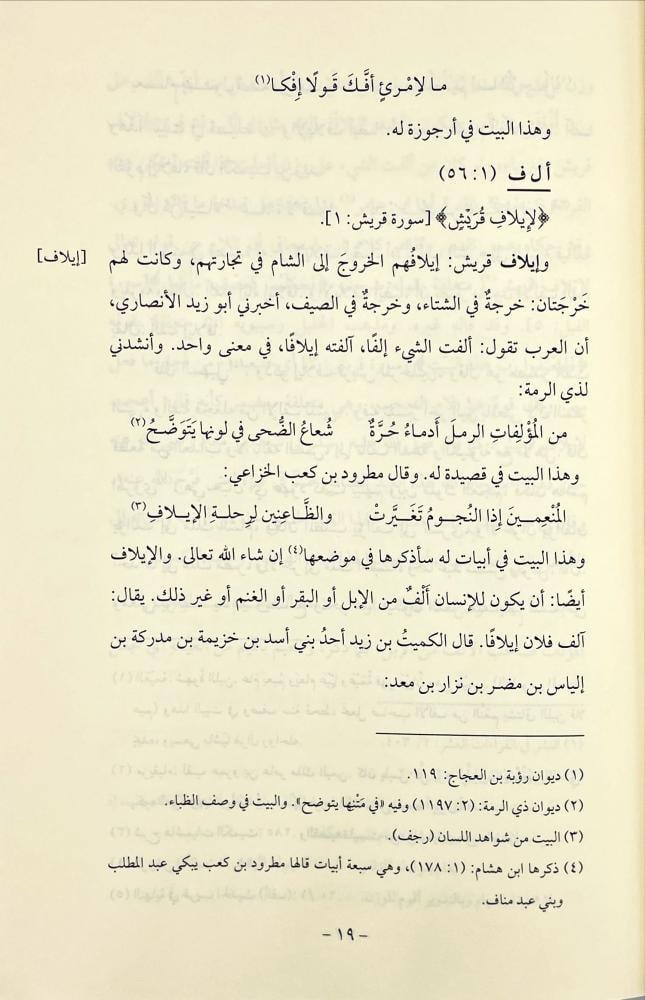 ما لامْرئٍ أفَّكَ قَولًا إفْكا(١)
وهذا البيت في أرجوزة له.
أ ل ف (١: ٥٦)
﴿لإيلافِ قُرَيْشٍ﴾ [سورة قريش: ١].
وإيلاف قريش: إيلافُهم الخروجَ إلى الشام في تجارتهم، وكانت لهم [إيلاف]
خَرْجَتان: خرجةٌ في الشتاء، وخرجةٌ في الصيف، أخبرني أبو زيد الأنصاري،
أن العرب تقول: ألفت الشيء إلفًا، آلفته إيلافًا، في معنى واحد. وأنشدني
لذي الرمة:
من المُؤْلِفاتِ الرملَ أدماءُ حُرَّةٌ شُعاعُ الضُّحى في لونها يَتَوَضَّحُ(٢)
وهذا البيت في قصيدة له. وقال مطرود بن كعب الخزاعي:
المُنْعِمـينَ إذا النُجـومُ تَغَيَّرَتْ والظَّاعِنِين لِرِحلـةِ الإيـلافِ(٣)
وهذا البيت في أبيات له سأذكرها في موضعها(٤) إن شاء الله تعالى. والإيلاف
أيضًا: أن يكون للإنسان أَلْفٌ من الإبل أو البقر أو الغنم أو غير ذلك. يقال:
آلف فلان إيلافًا. قال الكميتُ بن زيد أحدُ بني أسد بن خزيمة بن مدركة بن
إلياس بن مضر بن نزار بن معد:
(١) ديوان رؤبة بن العجاج: ١١٩.
(٢) ديوان ذي الرمة: (٢: ١١٩٧) وفيه «في مَتْنِها يتوضح». والبيت في وصف الظباء.
(٣) البيت من شواهد اللسان (رجف).
(٤) ذكرها ابن هشام: (١: ١٧٨)، وهي سبعة أبيات قالها مطرود بن كعب يبكي عبد المطلب
وبني عبد مناف.
- ١٩ -